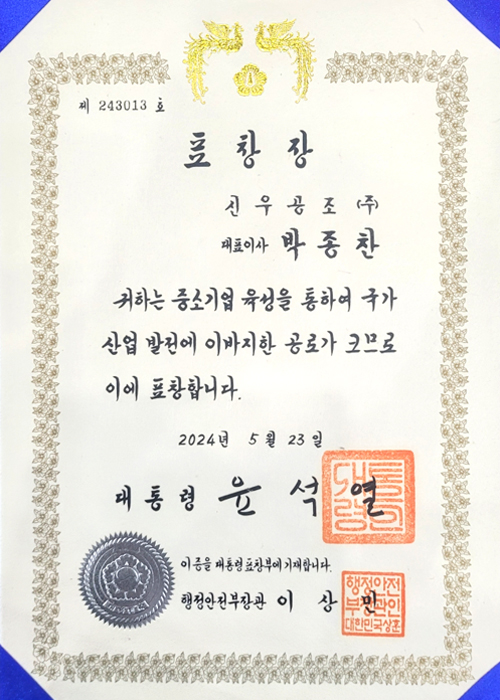 제 243013 호
표창장
신우공조(주)
대표이사 박종찬
귀하는 중소기업 육성을 통하여 국가
산업 발전에 이바지한 공로가 크므로
이에 표창합니다.
2024년 5월 23일
대통령 윤석열
대통령의인
이 증을 대통령표창부에 기재합니다.
행정안전부장관 이상민
행정안전
부장관인
대한민국상훈